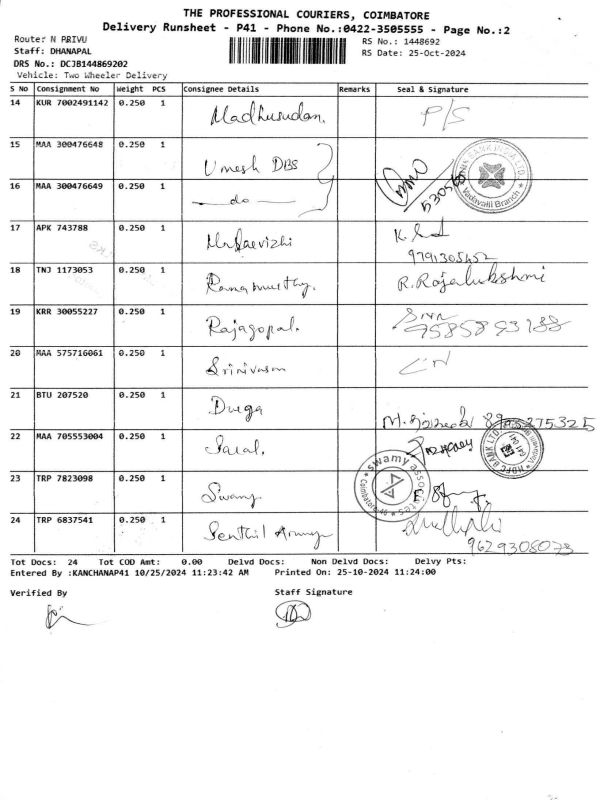 THE PROFESSIONAL COURIERS, COIMBATORE
Delivery Runsheet - P41 - Phone No.:0422-3505555 - Page No.:2
Route: N PRIVU
RS No.: 1448692
Staff: DHANAPAL
RS Date: 25-Oct-2024
DRS No.: DCJB144869202
Vehicle: Two Wheeler Delivery
S No Consignment No Weight PCS Consignee Details Remarks Seal & Signature
14 KUR 7002491142 0.250 1 Madhusudan. P/S
15 MAA 300476648 0.250 1 Umesh DBS
16 MAA 300476649 0.250 1 —do—
Vadavalli Branch
17 APK 743788 0.250 1
9791305452
18 TNJ 1173053 0.250 1 Ramamurthy. R. Rajalukshmi
19 KRR 30055227 0.250 1 Rajagopal.
9585893188
20 MAA 575716061 0.250 1 Srinivasan
21 BTU 207520 0.250 1 Durga
22 MAA 705553004 0.250 1
HDFC BANK LTD
23 TRP 7823098 0.250 1 Swamy
swamy associates
Coimbatore
24 TRP 6837541 0.250 1 Senthil
9629305073
Tot Docs: 24 Tot COD Amt: 0.00 Delvd Docs: Non Delvd Docs: Delvy Pts:
Entered By :KANCHANAP41 10/25/2024 11:23:42 AM Printed On: 25-10-2024 11:24:00
Verified By Staff Signature